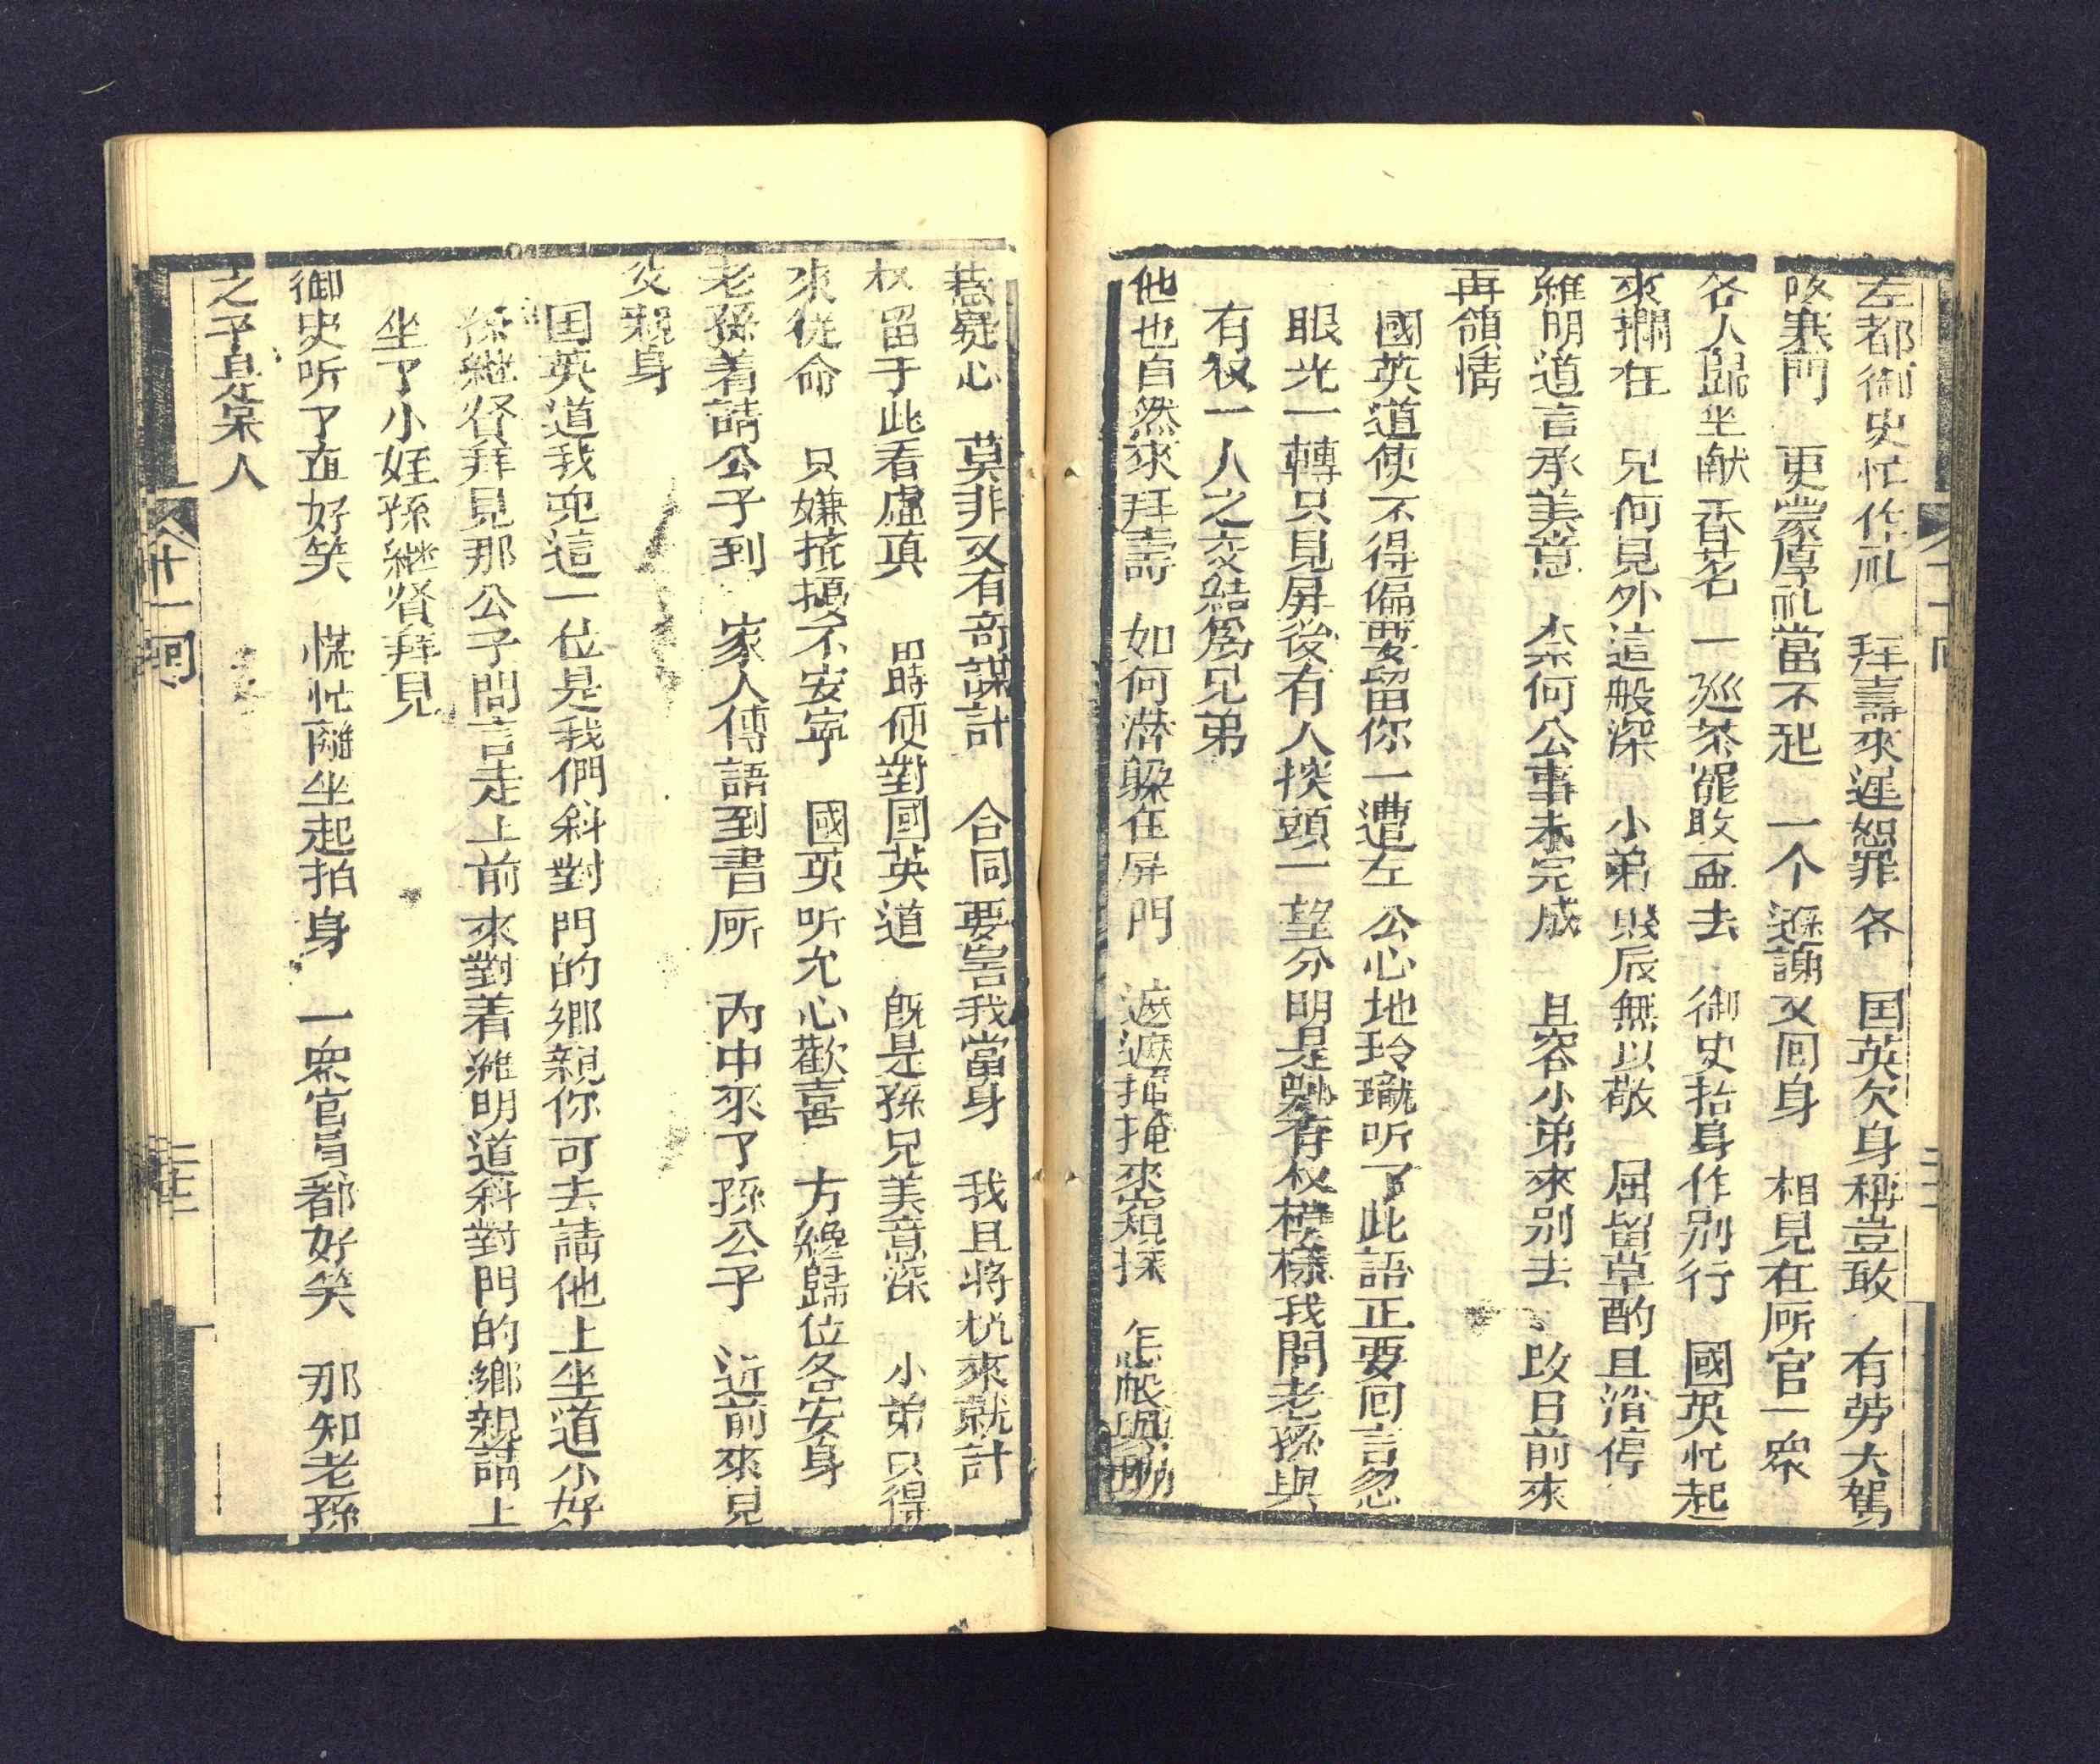 左都御史忙作礼　拜壽來遲恕罪各　国英欠身稱豈敢　有劳大駕
啟寒門　更蒙厚礼當不起　一个遜謝又回身　相見在厛官一衆
各人歸坐献香茗　一廵茶罷敢盃去　御史抬身作别行　國英忙起
來攔在　兄何見外這般深　小弟賤辰無以敬　屈留草酌且消停
維明道言承美意　奈何公事未完成　且容小弟來别去　改日前來
再領情
國英道使不得偏要留你一遭左公心地玲瓏听了此語正要回言忽
眼光一轉只見屏後有人探頭一望分明是魏有权模樣我問老孫與
有权一人之交結爲兄弟
他也自然來拜壽　如何潜躱在屏門　遮遮掩掩來窺探　怎
惹疑心　莫非又有奇謀計　合同要害我當身　我且将机來就計
权留于此看虛真　即時便對國英道　旣是孫兄美意深　小弟只得
來從命　只嫌搅擾不安寧　國英听允心歡喜　方纔歸位各安身
老孫着請公子到　家人傳語到書厛　内中來了孫公子　近前來見
父親身
国英道我兜這一位是我們斜對門的鄉親你可去請他上坐道小好
孫継賢拜見那公子聞言走上前來對着維明道斜對門的鄉親請上
坐了小姪孫継賢拜見
御史听了直好笑　慌忙離坐起抬身　一衆官員都好笑　那知老孫
之子是呆人
十一回